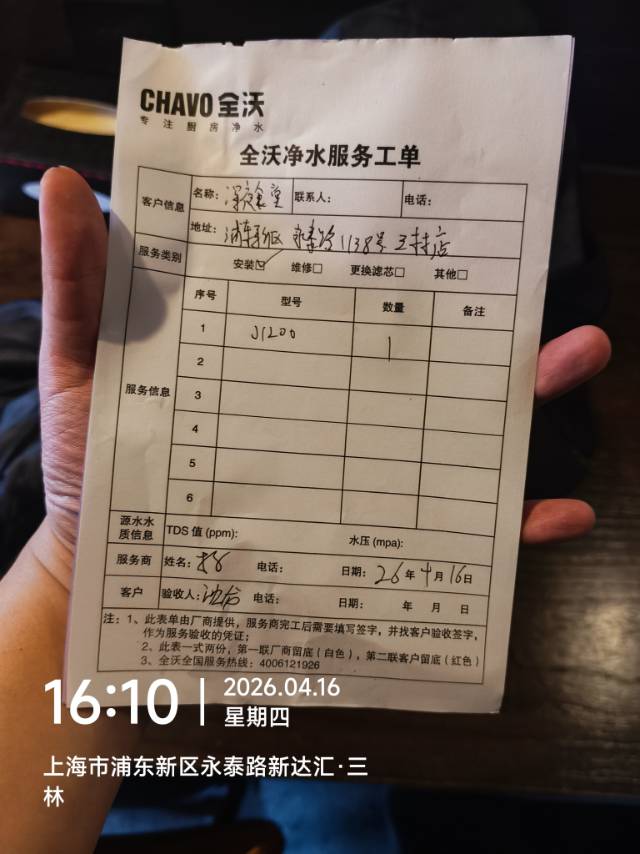 CHAVO 全沃
专注厨房净水
全沃净水服务工单
客户信息
名称:
联系人:
电话:
地址: 浦东新区 永泰路1138号 三林店
服务类别
安装☑ 维修□ 更换滤芯□ 其他□
服务信息
序号 型号 数量 备注
1 J1200 1
2
3
4
5
6
源水水质信息
TDS 值 (ppm): 水压 (mpa):
服务商 姓名: 电话: 日期: 26年4月16日
客户 验收人: 电话: 日期: 年 月 日
注: 1、此表单由厂商提供，服务商完工后需要填写签字，并找客户验收签字，
作为服务验收的凭证；
2、此表一式两份，第一联厂商留底（白色），第二联客户留底（红色）
3、全沃全国服务热线: 4006121926
16:10 2026.04.16
星期四
上海市浦东新区永泰路新达汇·三
林